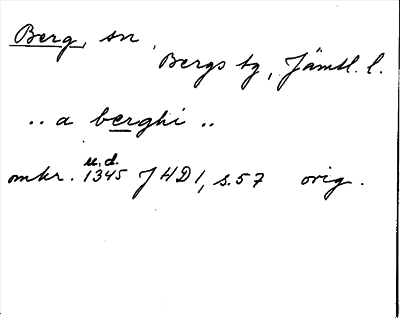 Berg, sn,
Bergs tg, Jämtl. l.
.. a berghi ..
u.d.
omkr. 1345 JHD 1, s. 57 orig.